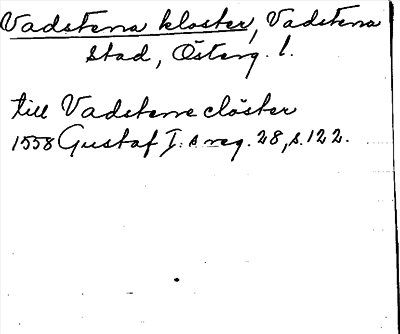 Vadstena kloster, Vadstena
Stad, Österg. l.
till Vadstene clöster
1558 Gustaf I:s reg. 28, s. 122.